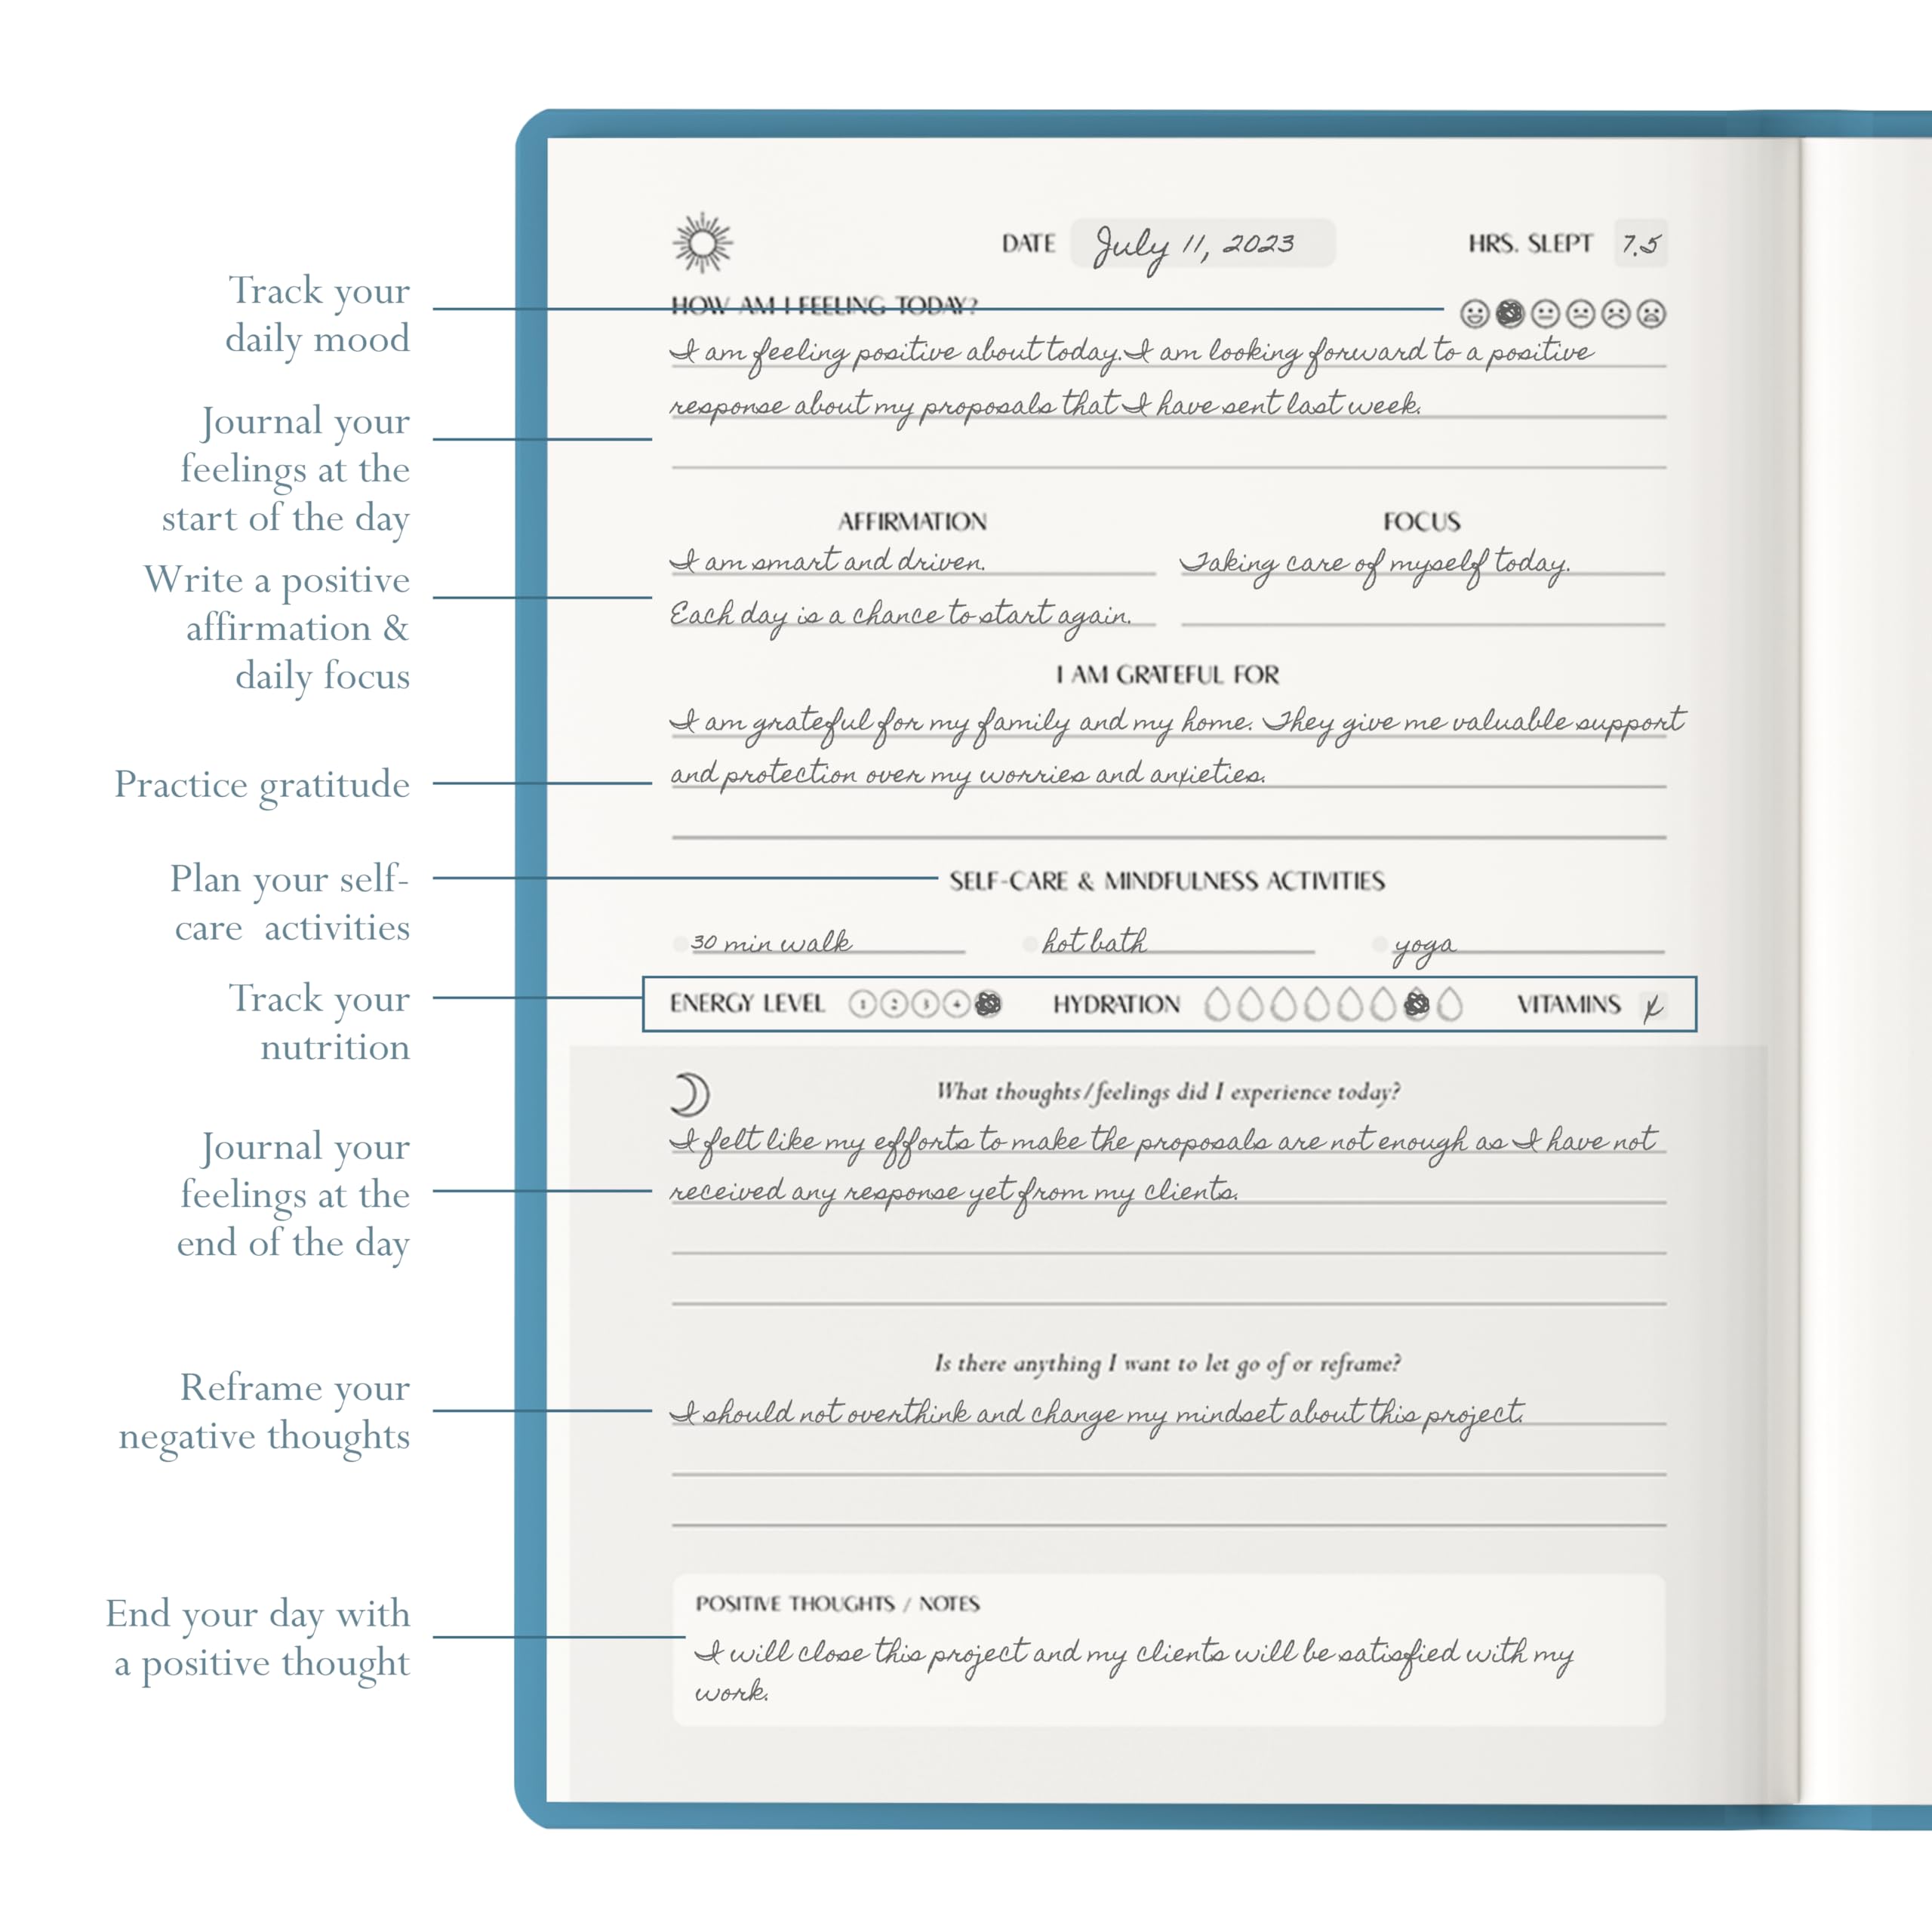 DATE July 11, 2023 HRS. SLEPT 7.5
Track your
daily mood
HOW AM I FEELING TODAY?
I am feeling positive about today. I am looking forward to a positive
response about my proposals that I have sent last week.
Journal your
feelings at the
start of the day
AFFIRMATION FOCUS
I am smart and driven. Taking care of myself today.
Each day is a chance to start again.
Write a positive
affirmation &
daily focus
I AM GRATEFUL FOR
I am grateful for my family and my home. They give me valuable support
and protection over my worries and anxieties.
Practice gratitude
Plan your self-
care activities
SELF-CARE & MINDFULNESS ACTIVITIES
30 min walk hot bath yoga
Track your
nutrition
ENERGY LEVEL 1 2 3 4 HYDRATION VITAMINS x
What thoughts/feelings did I experience today?
I felt like my efforts to make the proposals are not enough as I have not
received any response yet from my clients.
Journal your
feelings at the
end of the day
Is there anything I want to let go of or reframe?
I should not overthink and change my mindset about this project.
Reframe your
negative thoughts
POSITIVE THOUGHTS / NOTES
I will close this project and my clients will be satisfied with my
work.
End your day with
a positive thought